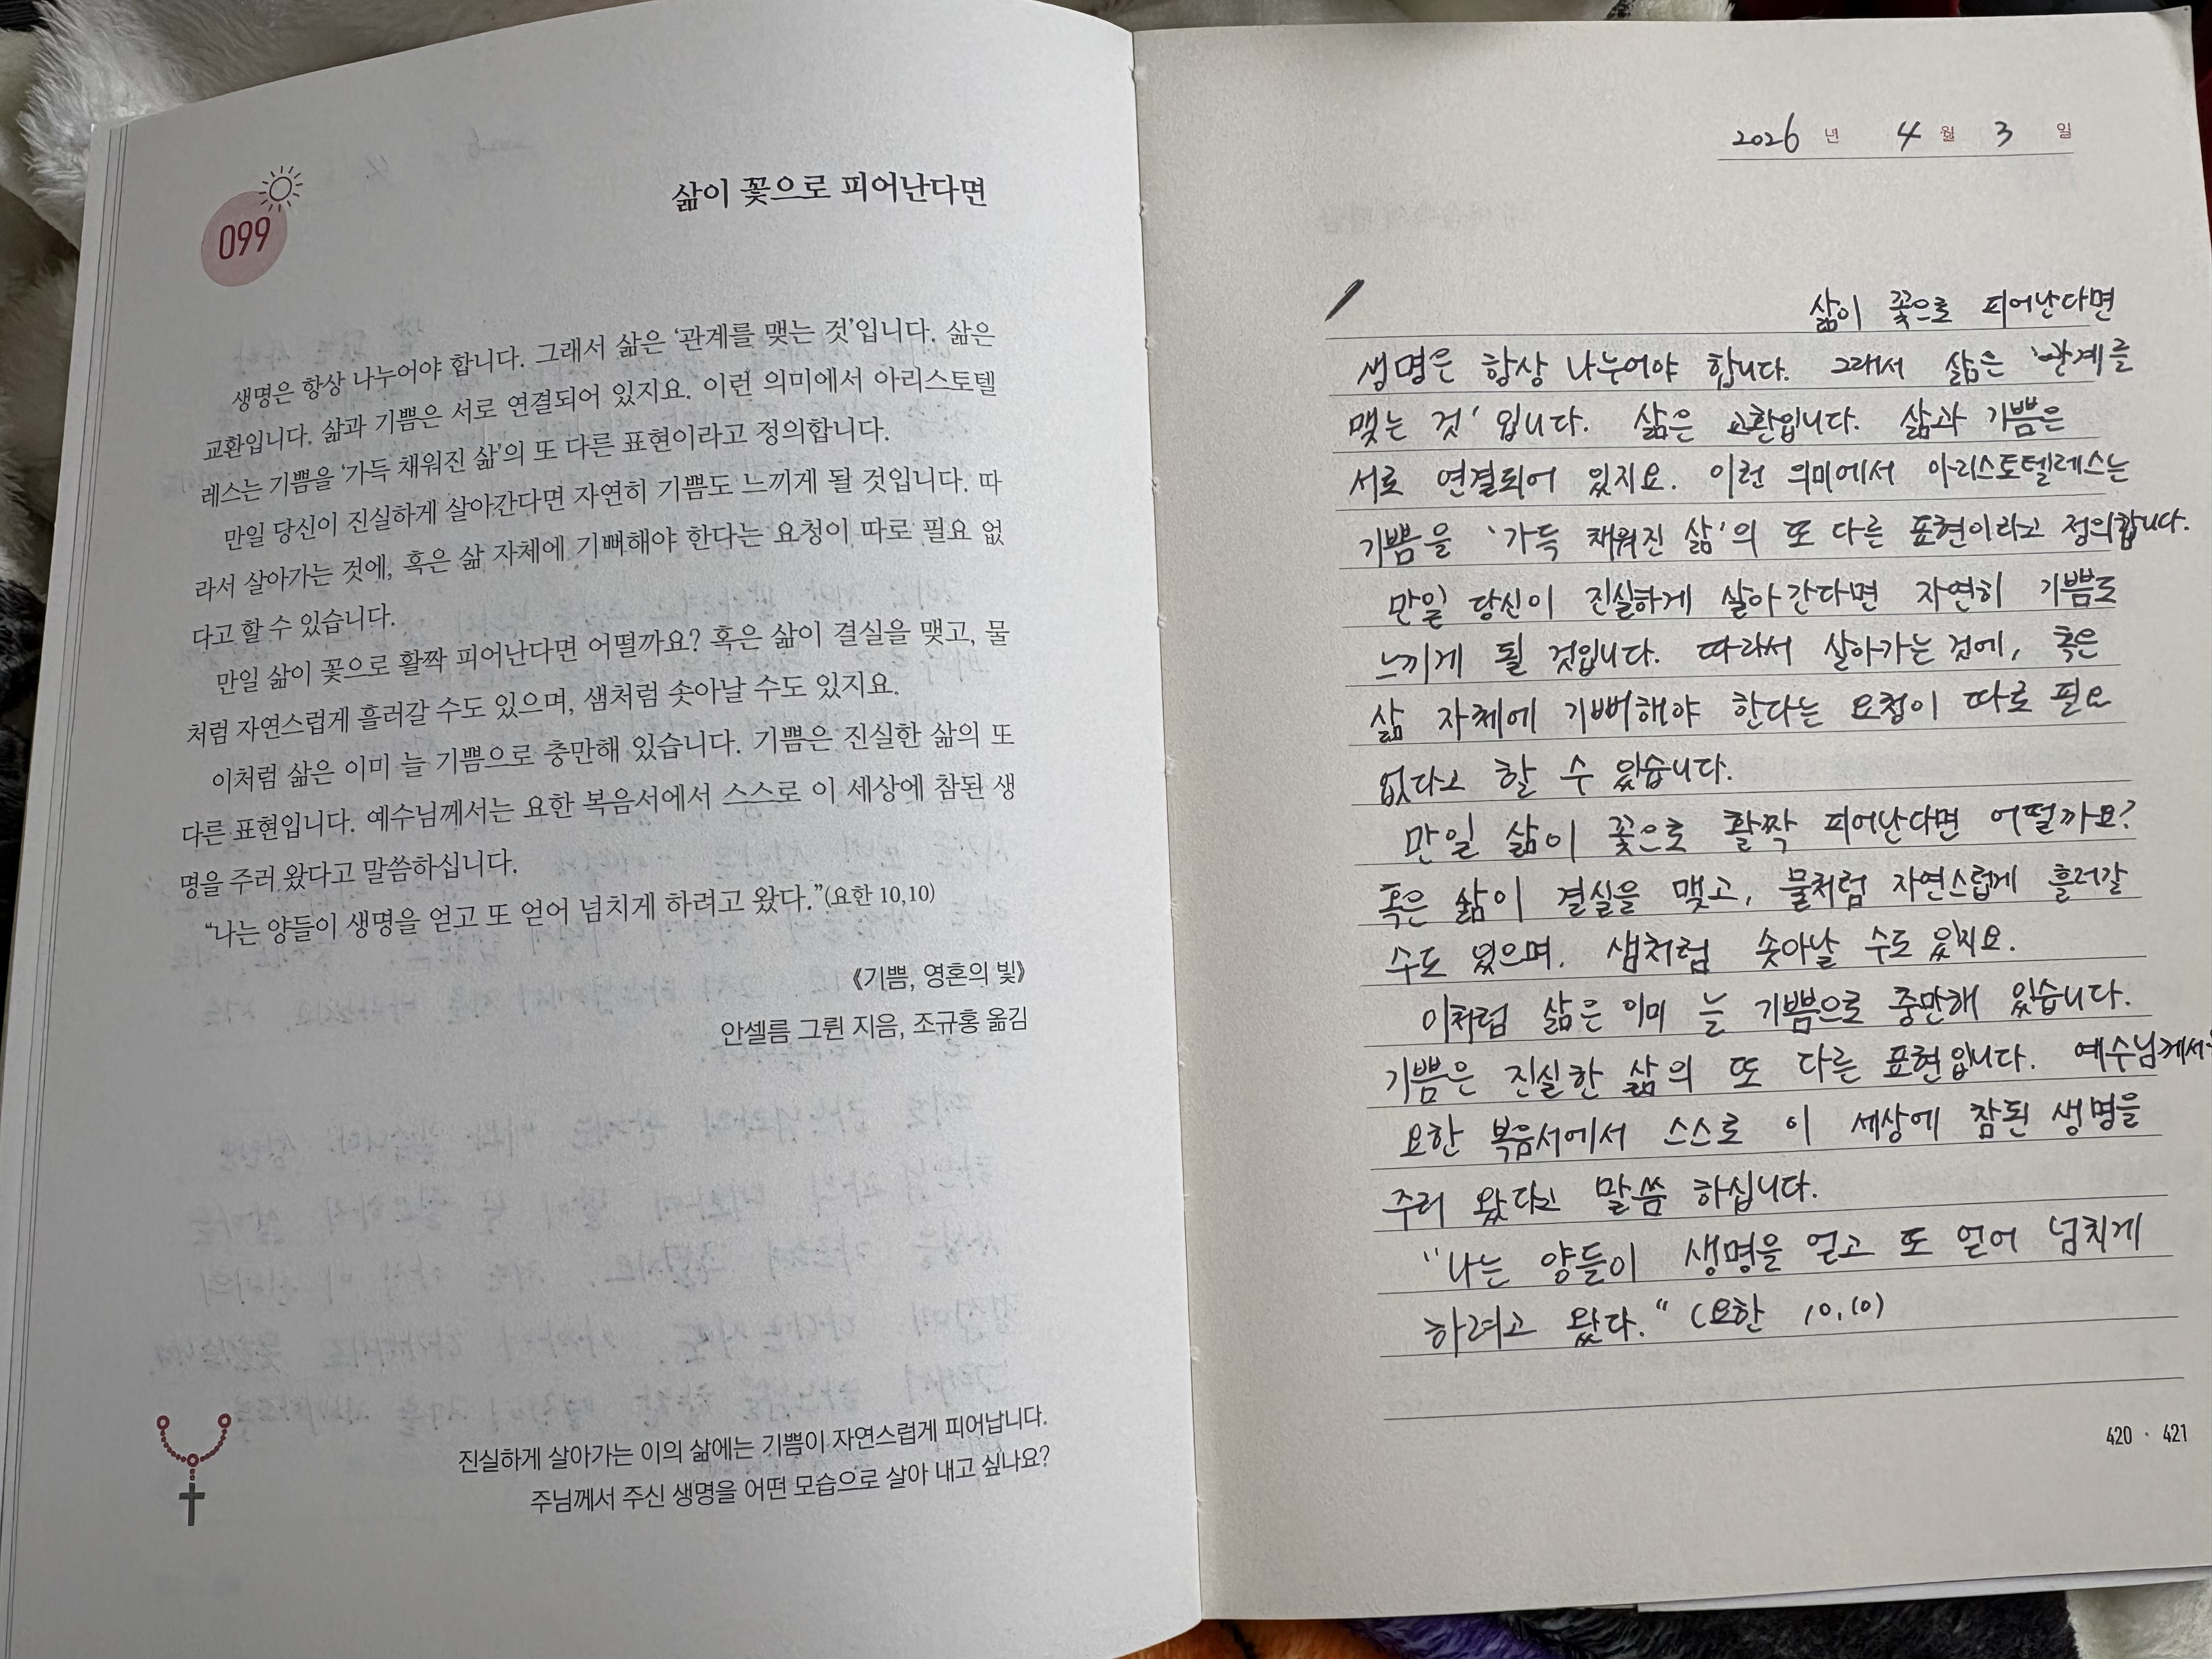 099
삶이 꽃으로 피어난다면
생명은 항상 나누어야 합니다. 그래서 삶은 ‘관계를 맺는 것’입니다. 삶은
교환입니다. 삶과 기쁨은 서로 연결되어 있지요. 이런 의미에서 아리스토텔
레스는 기쁨을 ‘가득 채워진 삶’의 또 다른 표현이라고 정의합니다.
만일 당신이 진실하게 살아간다면 자연히 기쁨도 느끼게 될 것입니다. 따
라서 살아가는 것에, 혹은 삶 자체에 기뻐해야 한다는 요청이 따로 필요 없
다고 할 수 있습니다.
만일 삶이 꽃으로 활짝 피어난다면 어떨까요? 혹은 삶이 결실을 맺고, 물
처럼 자연스럽게 흘러갈 수도 있으며, 샘처럼 솟아날 수도 있지요.
이처럼 삶은 이미 늘 기쁨으로 충만해 있습니다. 기쁨은 진실한 삶의 또
다른 표현입니다. 예수님께서는 요한 복음서에서 스스로 이 세상에 참된 생
명을 주러 왔다고 말씀하십니다.
“나는 양들이 생명을 얻고 또 얻어 넘치게 하려고 왔다.”(요한 10,10)
《기쁨, 영혼의 빛》
안셀름 그륀 지음, 조규홍 옮김
진실하게 살아가는 이의 삶에는 기쁨이 자연스럽게 피어납니다.
주님께서 주신 생명을 어떤 모습으로 살아 내고 싶나요?
2026 년 4 월 3 일
삶이 꽃으로 피어난다면
생명은 항상 나누어야 합니다. 그래서 삶은 ‘관계를
맺는 것’ 입니다. 삶은 교환입니다. 삶과 기쁨은
서로 연결되어 있지요. 이런 의미에서 아리스토텔레스는
기쁨을 ‘가득 채워진 삶’의 또 다른 표현이라고 정의합니다.
만일 당신이 진실하게 살아간다면 자연히 기쁨도
느끼게 될 것입니다. 따라서 살아가는 것에, 혹은
삶 자체에 기뻐해야 한다는 요청이 따로 필요
없다고 할 수 있습니다.
만일 삶이 꽃으로 활짝 피어난다면 어떨까요?
혹은 삶이 결실을 맺고, 물처럼 자연스럽게 흘러갈
수도 있으며. 샘처럼 솟아날 수도 있지요.
이처럼 삶은 이미 늘 기쁨으로 충만해 있습니다.
기쁨은 진실한 삶의 또 다른 표현입니다. 예수님께서
요한 복음서에서 스스로 이 세상에 참된 생명을
주러 왔다고 말씀 하십니다.
“나는 양들이 생명을 얻고 또 얻어 넘치게
하려고 왔다.“ (요한 10,10)
420 · 421